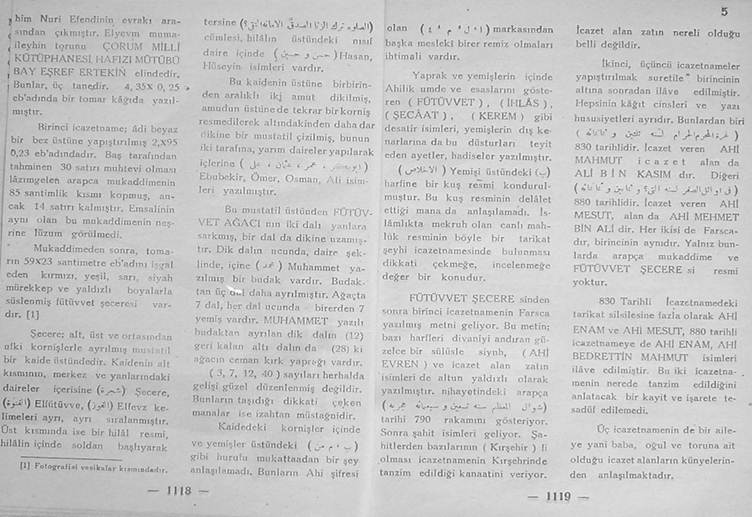 him Nuri Efendinin evrakı ara-
sından çıkmıştır. Elyevm muma-
ileyhin torunu ÇORUM MİLLİ
KÜTÜPHANESİ HAFIZI MÜTÜBÜ
BAY EŞREF ERTEKİN elindedir.
Bunlar, üç tanedir. 4,35X 0,25
eb'adında bir tomar kâğıda yazıl-
mıştır.
Birinci icazetname; âdi beyaz
bir bez üstüne yapıştırılmış 2,X95
0,23 eb'adındadır. Baş tarafından
tahminen 30 satırı muhtevi olması
lâzımgelen arapca mukaddimenin
85 santimlik kısmı kopmuş, an-
cak 14 satırı kalmıştır. Emsalinin
aynı olan bu mukaddimenin neş-
rine lüzum görülmedi.
Mukaddimeden sonra, toma-
rın 59X23 santimetre eb'adını işgal
eden kırmızı, yeşil, sarı, siyah
mürekkep ve yaldızlı boyalarla
süslenmiş fütüvvet şeceresi var-
dır. [1]
Şecere; alt, üst ve ortasından
ufki kornişlerle ayrılmış mustatil
bir kaide üstündedir. Kaidenin alt
kısmının, merkez ve yanlarındaki
daireler içerisine (شجرة) Şecere,
(الفتوة) Elfütüvve, (الفوز) Elfevz ke-
limeleri ayrı, ayrı sıralanmıştır.
Üst kısmında ise bir hilâl resmi,
hilâlin içinde soldan başlıyarak
[1] Fotografisi vesikalar kısmındadır.
— 1118 —
tersine
cümlesi, hilâlin üstündeki nısıf
daire içinde (حسن و حسين) Hasan,
Hüseyin isimleri vardır.
Bu kaidenin üstüne birbirin-
den aralıklı iki amut dikilmiş,
amudun üstüne de tekrar bir korniş
resmedilerek altındakinden daha dar
dikine bir mustatil çizilmiş, bunun
iki tarafına, yarım daireler yapılarak
içlerine (ابوبكر ، عمر ، عثمان ، على)
Ebubekir, Ömer, Osman, Ali isim-
leri yazılmıştır.
Bu mustatil üstünden FÜTÜV-
VET AĞACI nın iki dalı yanlara
sarkmış, bir dal da dikine uzamış-
tır. Dik dalın ucunda, daire şek-
linde, içine (محمد) Muhammet ya-
zılmış bir budak vardır. Budak-
tan üç dal daha ayrılmıştır. Ağaçta
7 dal, her dal ucunda birerden 7
yemiş vardır. MUHAMMET yazılı
budaktan ayrılan dik dalın (12)
geri kalan altı dalın da (28) ki
ağacın ceman kırk yaprağı vardır.
( 3, 7, 12, 40 ) sayıları herhalda
gelişi güzel düzenlenmiş değildir.
Bunların taşıdığı dikkati çeken
manalar ise izahtan müstağnidir.
Kaidedeki kornişler içinde
ve yemişler üstündeki
gibi hurufu mukattaadan bir şey
anlaşılamadı. Bunların Ahi şifresi
olan markasından
başka mesleki birer remiz olmaları
ihtimali vardır.
Yaprak ve yemişlerin içinde
Ahilik umde ve esaslarını göste-
ren ( FÜTÜVVET ) , ( İHLÂS ) ,
( ŞECÂAT ) , ( KEREM ) gibi
desatir isimleri, yemişlerin dış ke-
narlarına da bu düsturları teyit
eden ayetler, hadiseler yazılmıştır.
(الاخلاص) Yemişi üstündeki (ب)
harfine bir kuş resmi kondurul-
muştur. Bu kuş resminin delâlet
ettiği mana da anlaşılamadı. İs-
lâmlıkta mekruh olan canlı mah-
lûk resminin böyle bir tarikat
şeyhi icazetnamesinde bulunması
dikkati çekmeğe, incelenmeğe
değer bir konudur.
FÜTÜVVET ŞECERE sinden
sonra birinci icazetnamenin Farsca
yazılmış metni geliyor. Bu metin;
bazı harfleri divaniyi andıran gü-
zelce bir sülüsle siyah, ( AHİ
EVREN ) ve icazet alan zatın
isimleri de altun yaldızlı olarak
yazılmıştır. nihayetindeki arapça
tarihi 790 rakamını gösteriyor.
Sonra şahit isimleri geliyor. Şa-
hitlerden bazılarının ( Kırşehir ) li
olması icazetnamenin Kırşehirde
tanzim edildiği kanaatini veriyor.
5
İcazet alan zatın nereli olduğu
belli değildir.
İkinci, üçüncü icazetnameler
yapıştırılmak suretile birincinin
altına sonradan ilâve edilmiştir.
Hepsinin kâğıt cinsleri ve yazı
hususiyetleri ayrıdır. Bunlardan biri
830 tarihlidir. İcazet veren AHİ
MAHMUT icazet alan da
ALİ BİN KASIM dır. Diğeri
880 tarihlidir. İcazet veren AHİ
MESUT, alan da AHİ MEHMET
BİN ALİ dir. Her ikisi de Farsca-
dır, birincinin aynıdır. Yalnız bun-
larda arapça mukaddime ve
FÜTÜVVET ŞECERE si resmi
yoktur.
830 Tarihli İcazetnamedeki
tarikat silsilesine fazla olarak AHİ
ENAM ve AHİ MESUT, 880 tarihli
icazetnameye de AHİ ENAM, AHİ
BEDRETTİN MAHMUT isimleri
ilâve edilmiştir. Bu iki icazetna-
menin nerede tanzim edildiğini
anlatacak bir kayit ve işarete te-
sadüf edilemedi.
Üç icazetnamenin de bir aile-
ye yani baba, oğul ve toruna ait
olduğu icazet alanların künyelerin-
den anlaşılmaktadır.
— 1119 —